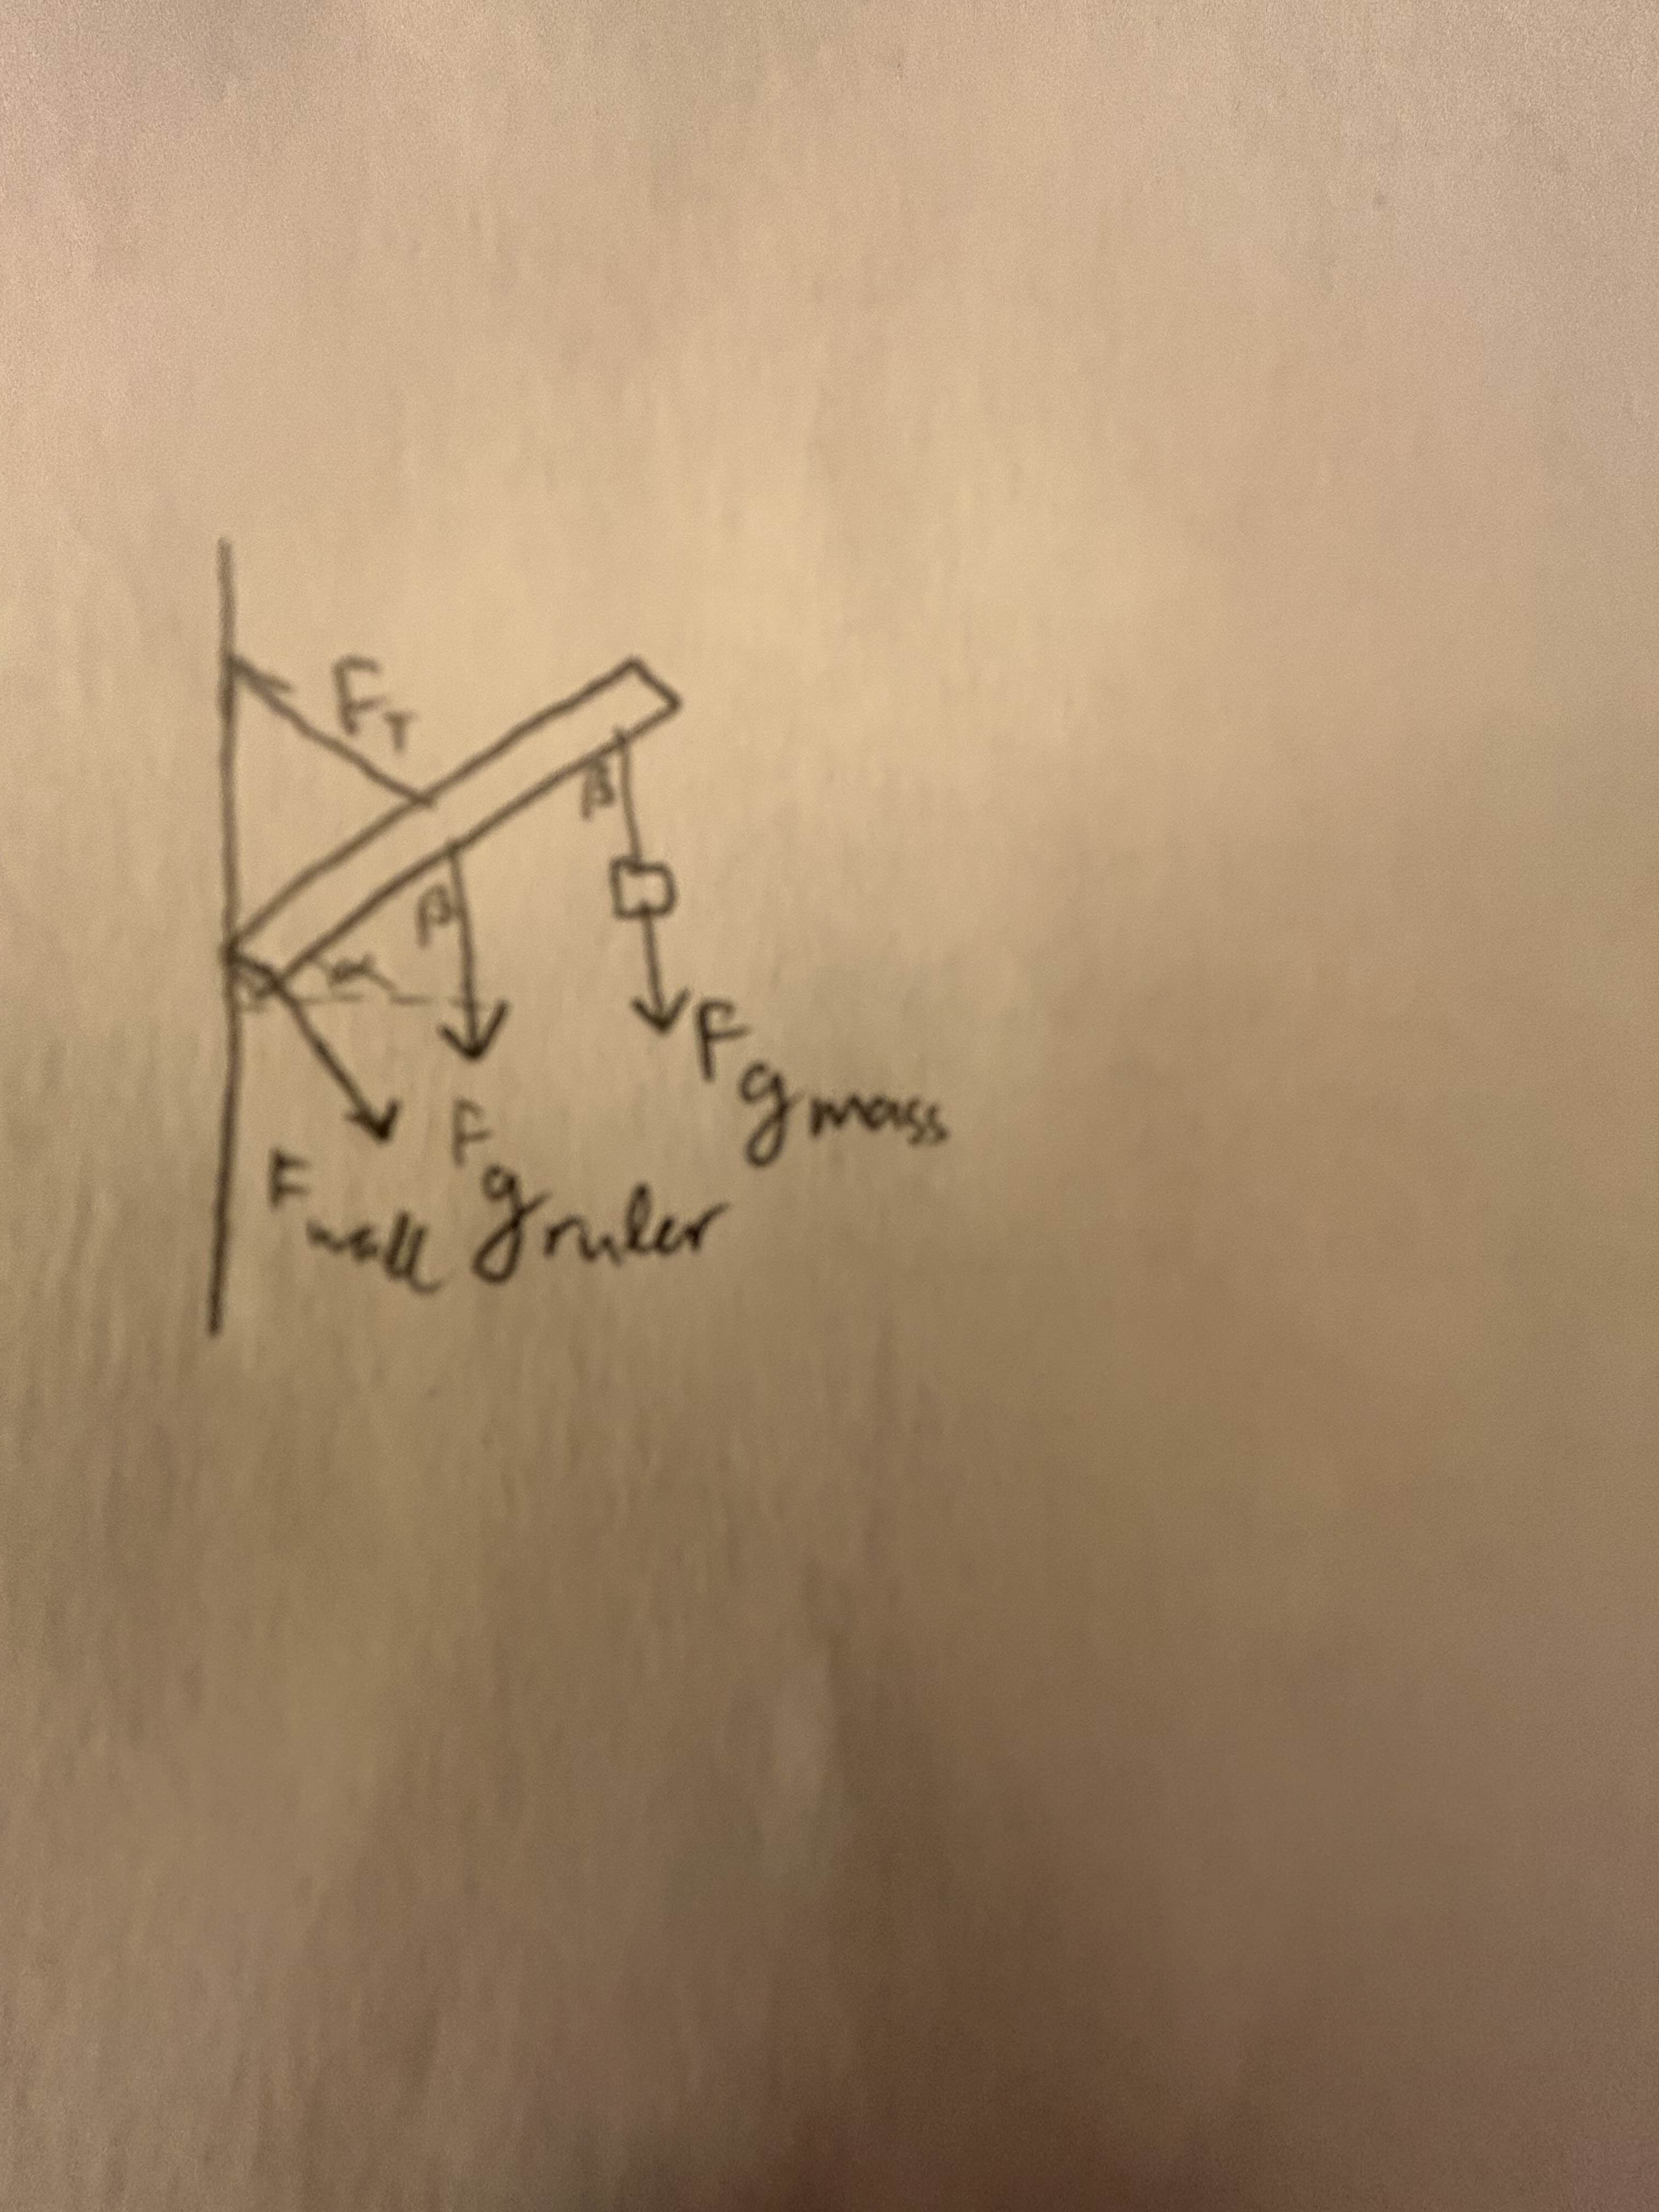 F_T
β
β
α
F_g mass
F_g ruler
F_wall